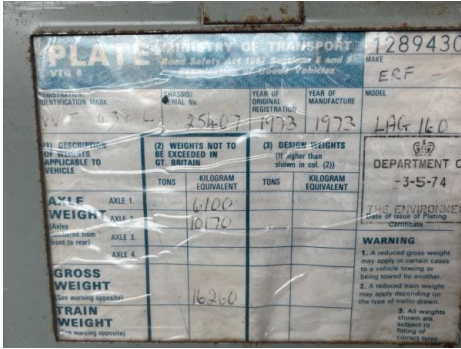 PLATE
VTG 6
MINISTRY OF TRANSPORT
Road Safety Act 1967 Sections 8 and 9
Examination of Goods Vehicles
1289430
REGISTRATION/
IDENTIFICATION MARK
CHASSIS/
SERIAL No.
25403
YEAR OF
ORIGINAL
REGISTRATION
1973
YEAR OF
MANUFACTURE
1973
MAKE
ERF
MODEL
LAG 160
(1) DESCRIPTION
OF WEIGHTS
APPLICABLE TO
VEHICLE
(2) WEIGHTS NOT TO
BE EXCEEDED IN
GT. BRITAIN
(3) DESIGN WEIGHTS
(If higher than
shown in col. (2))
TONS
KILOGRAM
EQUIVALENT
TONS
KILOGRAM
EQUIVALENT
AXLE
WEIGHT
(Axles
numbered from
front to rear)
AXLE 1.
6100
AXLE 2.
10170
AXLE 3.
AXLE 4.
GROSS
WEIGHT
(See warning opposite)
16260
TRAIN
WEIGHT
(See warning opposite)
DEPARTMENT O
-3-5-74
THE ENVIRONME
Date of issue of Plating
Certificate
WARNING
1. A reduced gross weight
may apply in certain cases
to a vehicle towing or
being towed by another.
2. A reduced train weight
may apply depending on
the type of trailer drawn.
3. All weights
shown are
subject to
fitting of
correct tyres